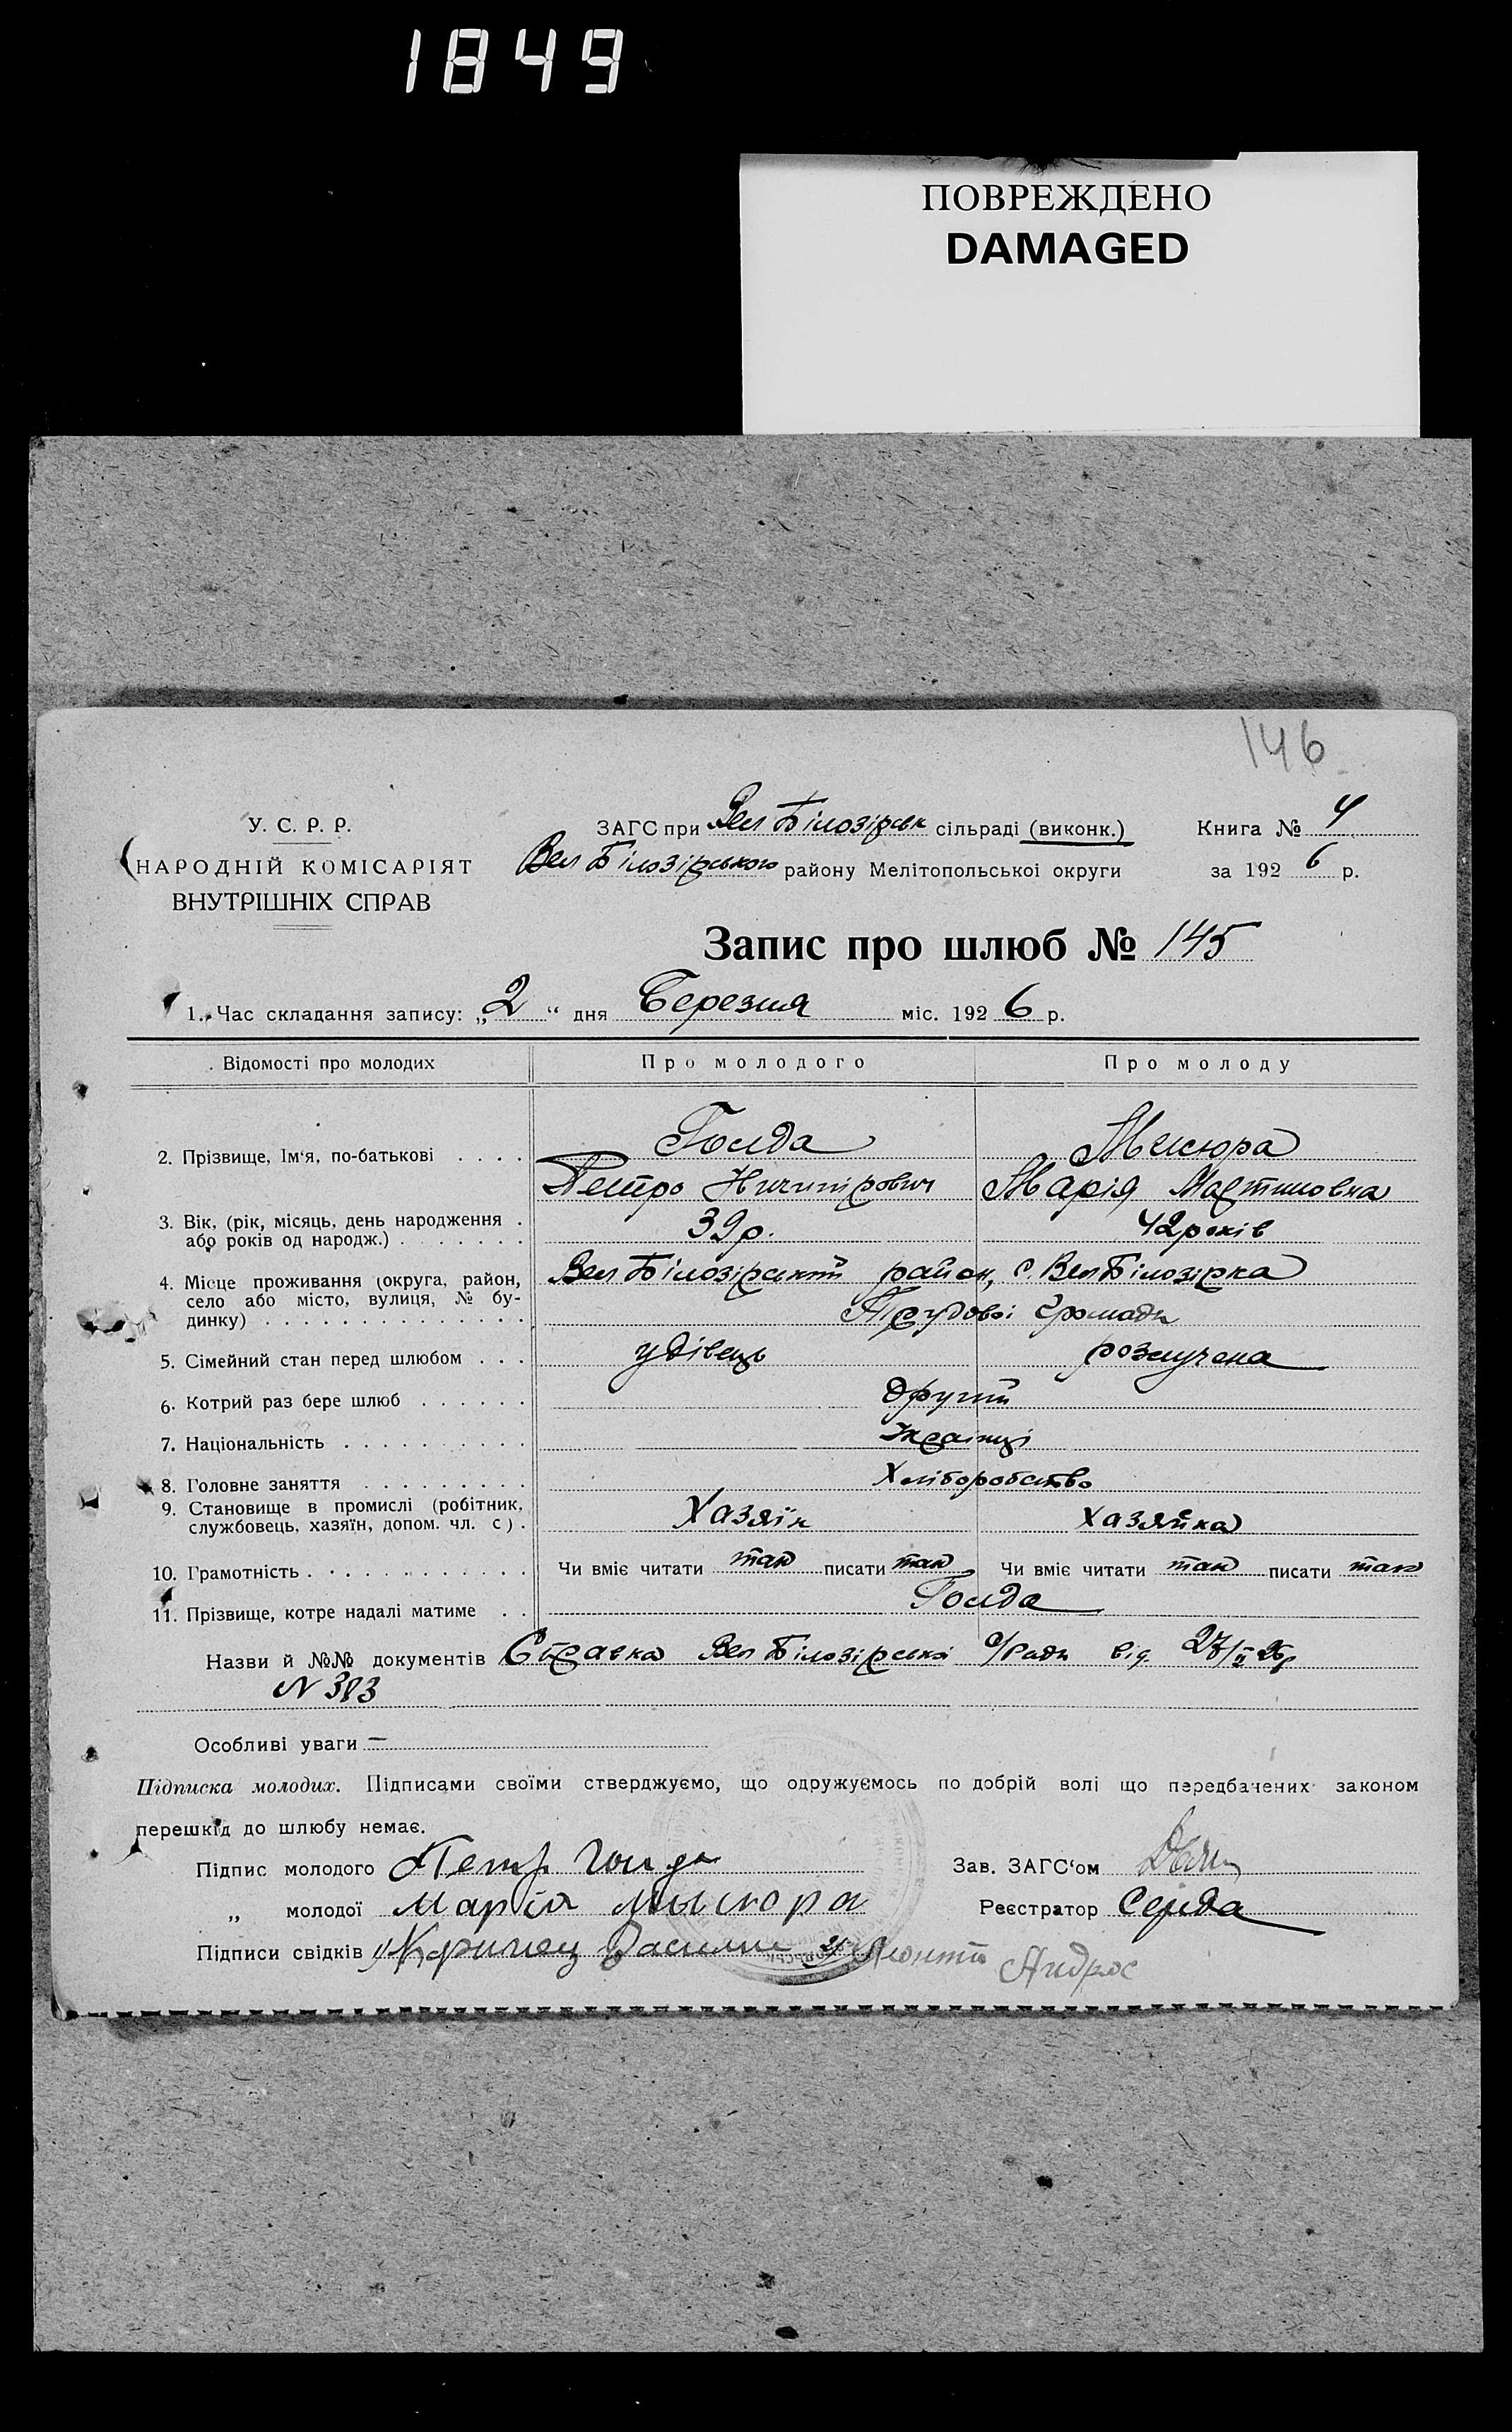 1849
ПОВРЕЖДЕНО
DAMAGED
146
У. С. Р. Р.
НАРОДНІЙ КОМІСАРІЯТ
ВНУТРІШНІХ СПРАВ
ЗАГС при Вел Білозірськ сільраді (виконк.)
Вел Білозірського району Мелітопольської округи
Книга № 4
за 1926 р.
Запис про шлюб № 145
1. Час складання запису: „2“ дня Березня міс. 1926 р.
Відомості про молодих
Про молодого
Про молоду
2. Прізвище, Ім‘я, по-батькові . . . .
Гонда
Петро Ничипірович
Мисюра
Марія Мартиновна
3. Вік, (рік, місяць, день народження .
або років од народж.) . . . . . . .
39р.
42 років
4. Місце проживання (округа, район,
село або місто, вулиця, № бу-
динку) . . . . . . . . . . . . . .
Вел Білозірський район, с. Вел Білозірка
Трудової Громади
5. Сімейний стан перед шлюбом . . .
удівець
розлучена
6. Котрий раз бере шлюб . . . . . .
другий
7. Національність . . . . . . . . . .
Українці
8. Головне заняття . . . . . . . . .
Хліборобство
9. Становище в промислі (робітник,
службовець, хазяїн, допом. чл. с) .
Хазяїн
хазяйка
10. Грамотність . . . . . . . . . . . .
Чи вміє читати так писати так
Чи вміє читати так писати так
11. Прізвище, котре надалі матиме . .
Гонда
Назви й №№ документів Справка Вел Білозірської с/Ради від 27/II 26р
N 383
Особливі уваги —
Підписка молодих. Підписами своїми стверджуємо, що одружуємось по добрій волі що передбачених законом
перешкід до шлюбу немає.
Підпис молодого Петр Гонда
Зав. ЗАГС‘ом
„ молодої Марія Мысюра
Реєстратор Середа
Підписи свідків 1/ Василь 2/ Андрос